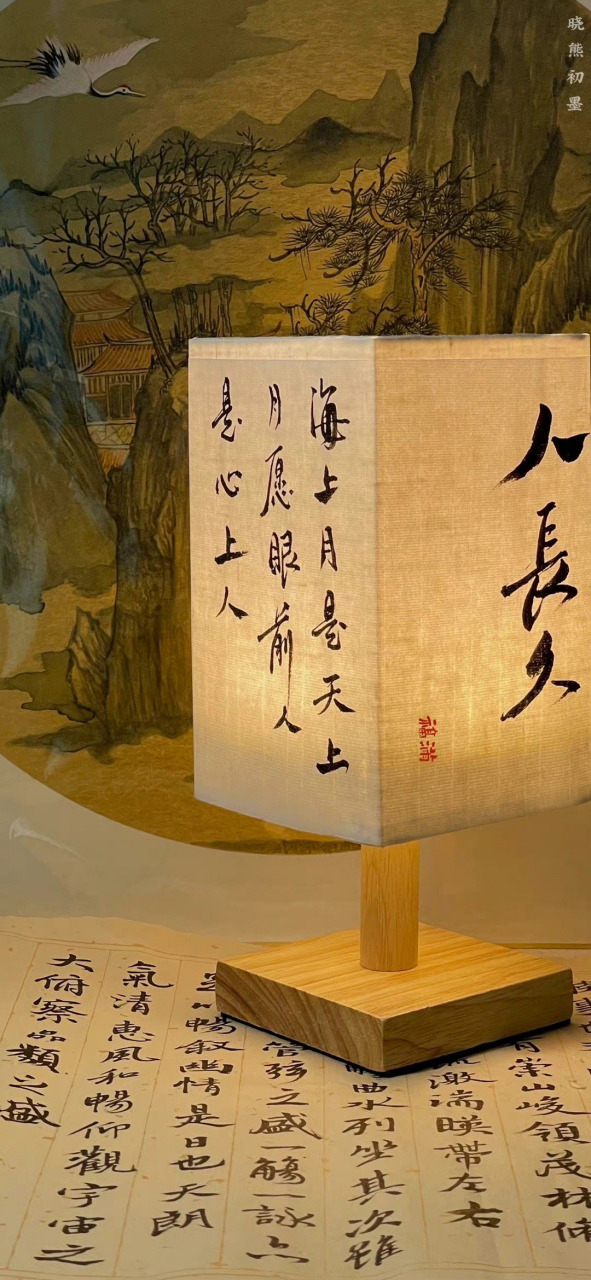 晓熊初墨
海上月是天上
月愿眼前人
是心上人
人長久
崇山峻領茂林脩
激湍暎帶左右
曲水列坐其次雖
管弦之盛一觴一詠亦
足以暢叙幽情是日也天朗
氣清惠風和暢仰觀宇宙之
大俯察品類之盛